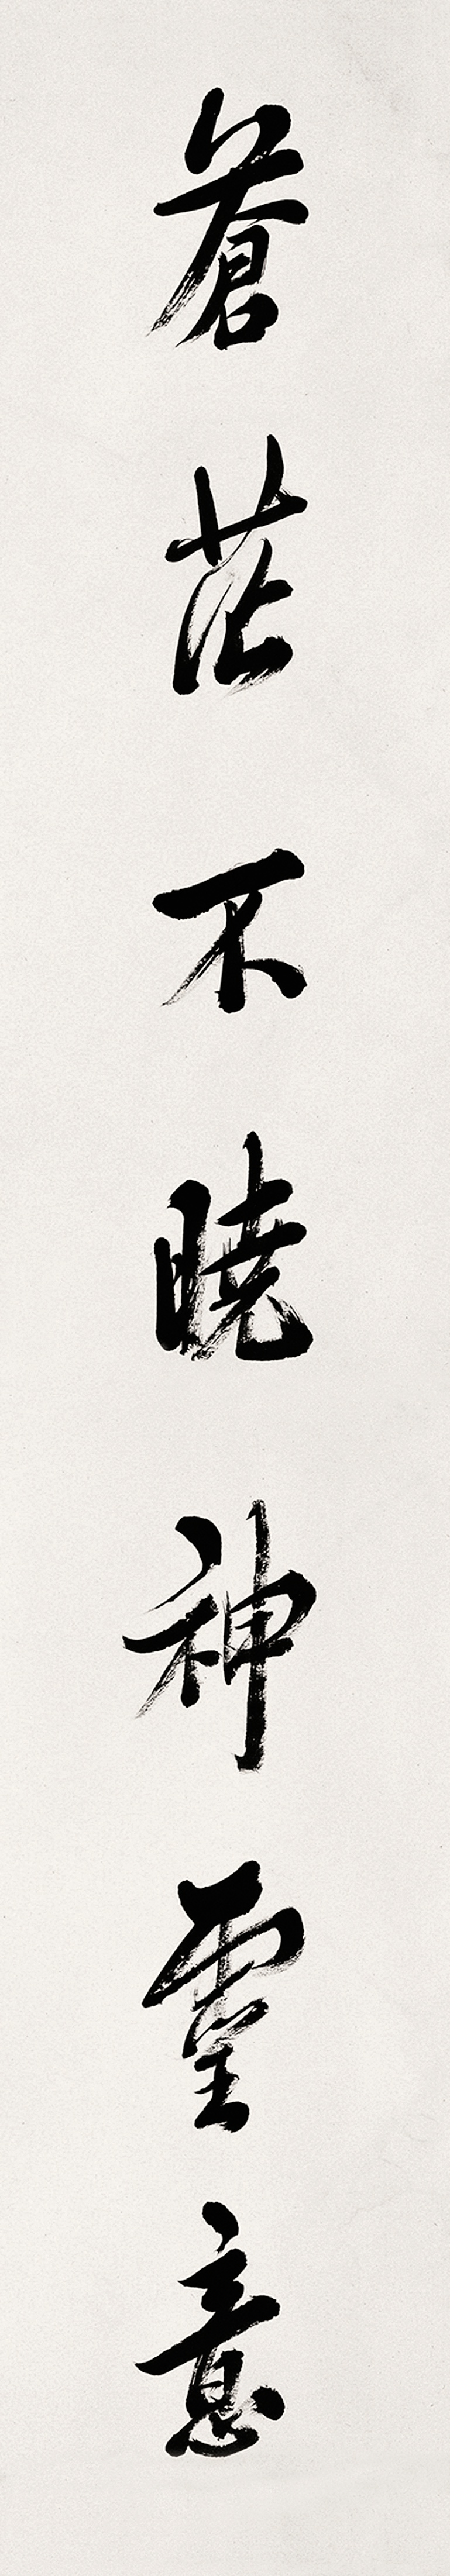 蒼茫不曉神靈意